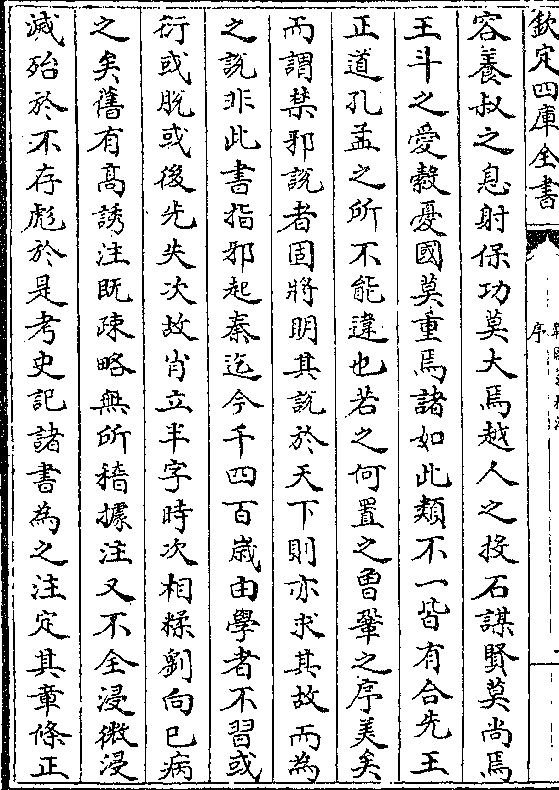 欽定四庫全書
序
容養叔之息射保功莫大焉越人之投石謀賢莫尚焉
王斗之愛縠憂國莫重焉諸如此類不一皆有合先王
正道孔孟之所不能違也若之何置之曾鞏之序美矣
而謂禁邪說者固將明其說於天下則亦求其故而為
之說非此書指邪起秦迄今千四百歲由學者不習或
衍或脫或後先失次故肖立半字時次相糅劉向已病
之矣舊有高誘注既疎略無所稽據注又不全浸微浸
滅殆於不存彪於是考史記諸書為之注定其章條正